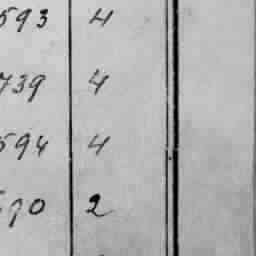 593 4
739 4
594 4
590 2